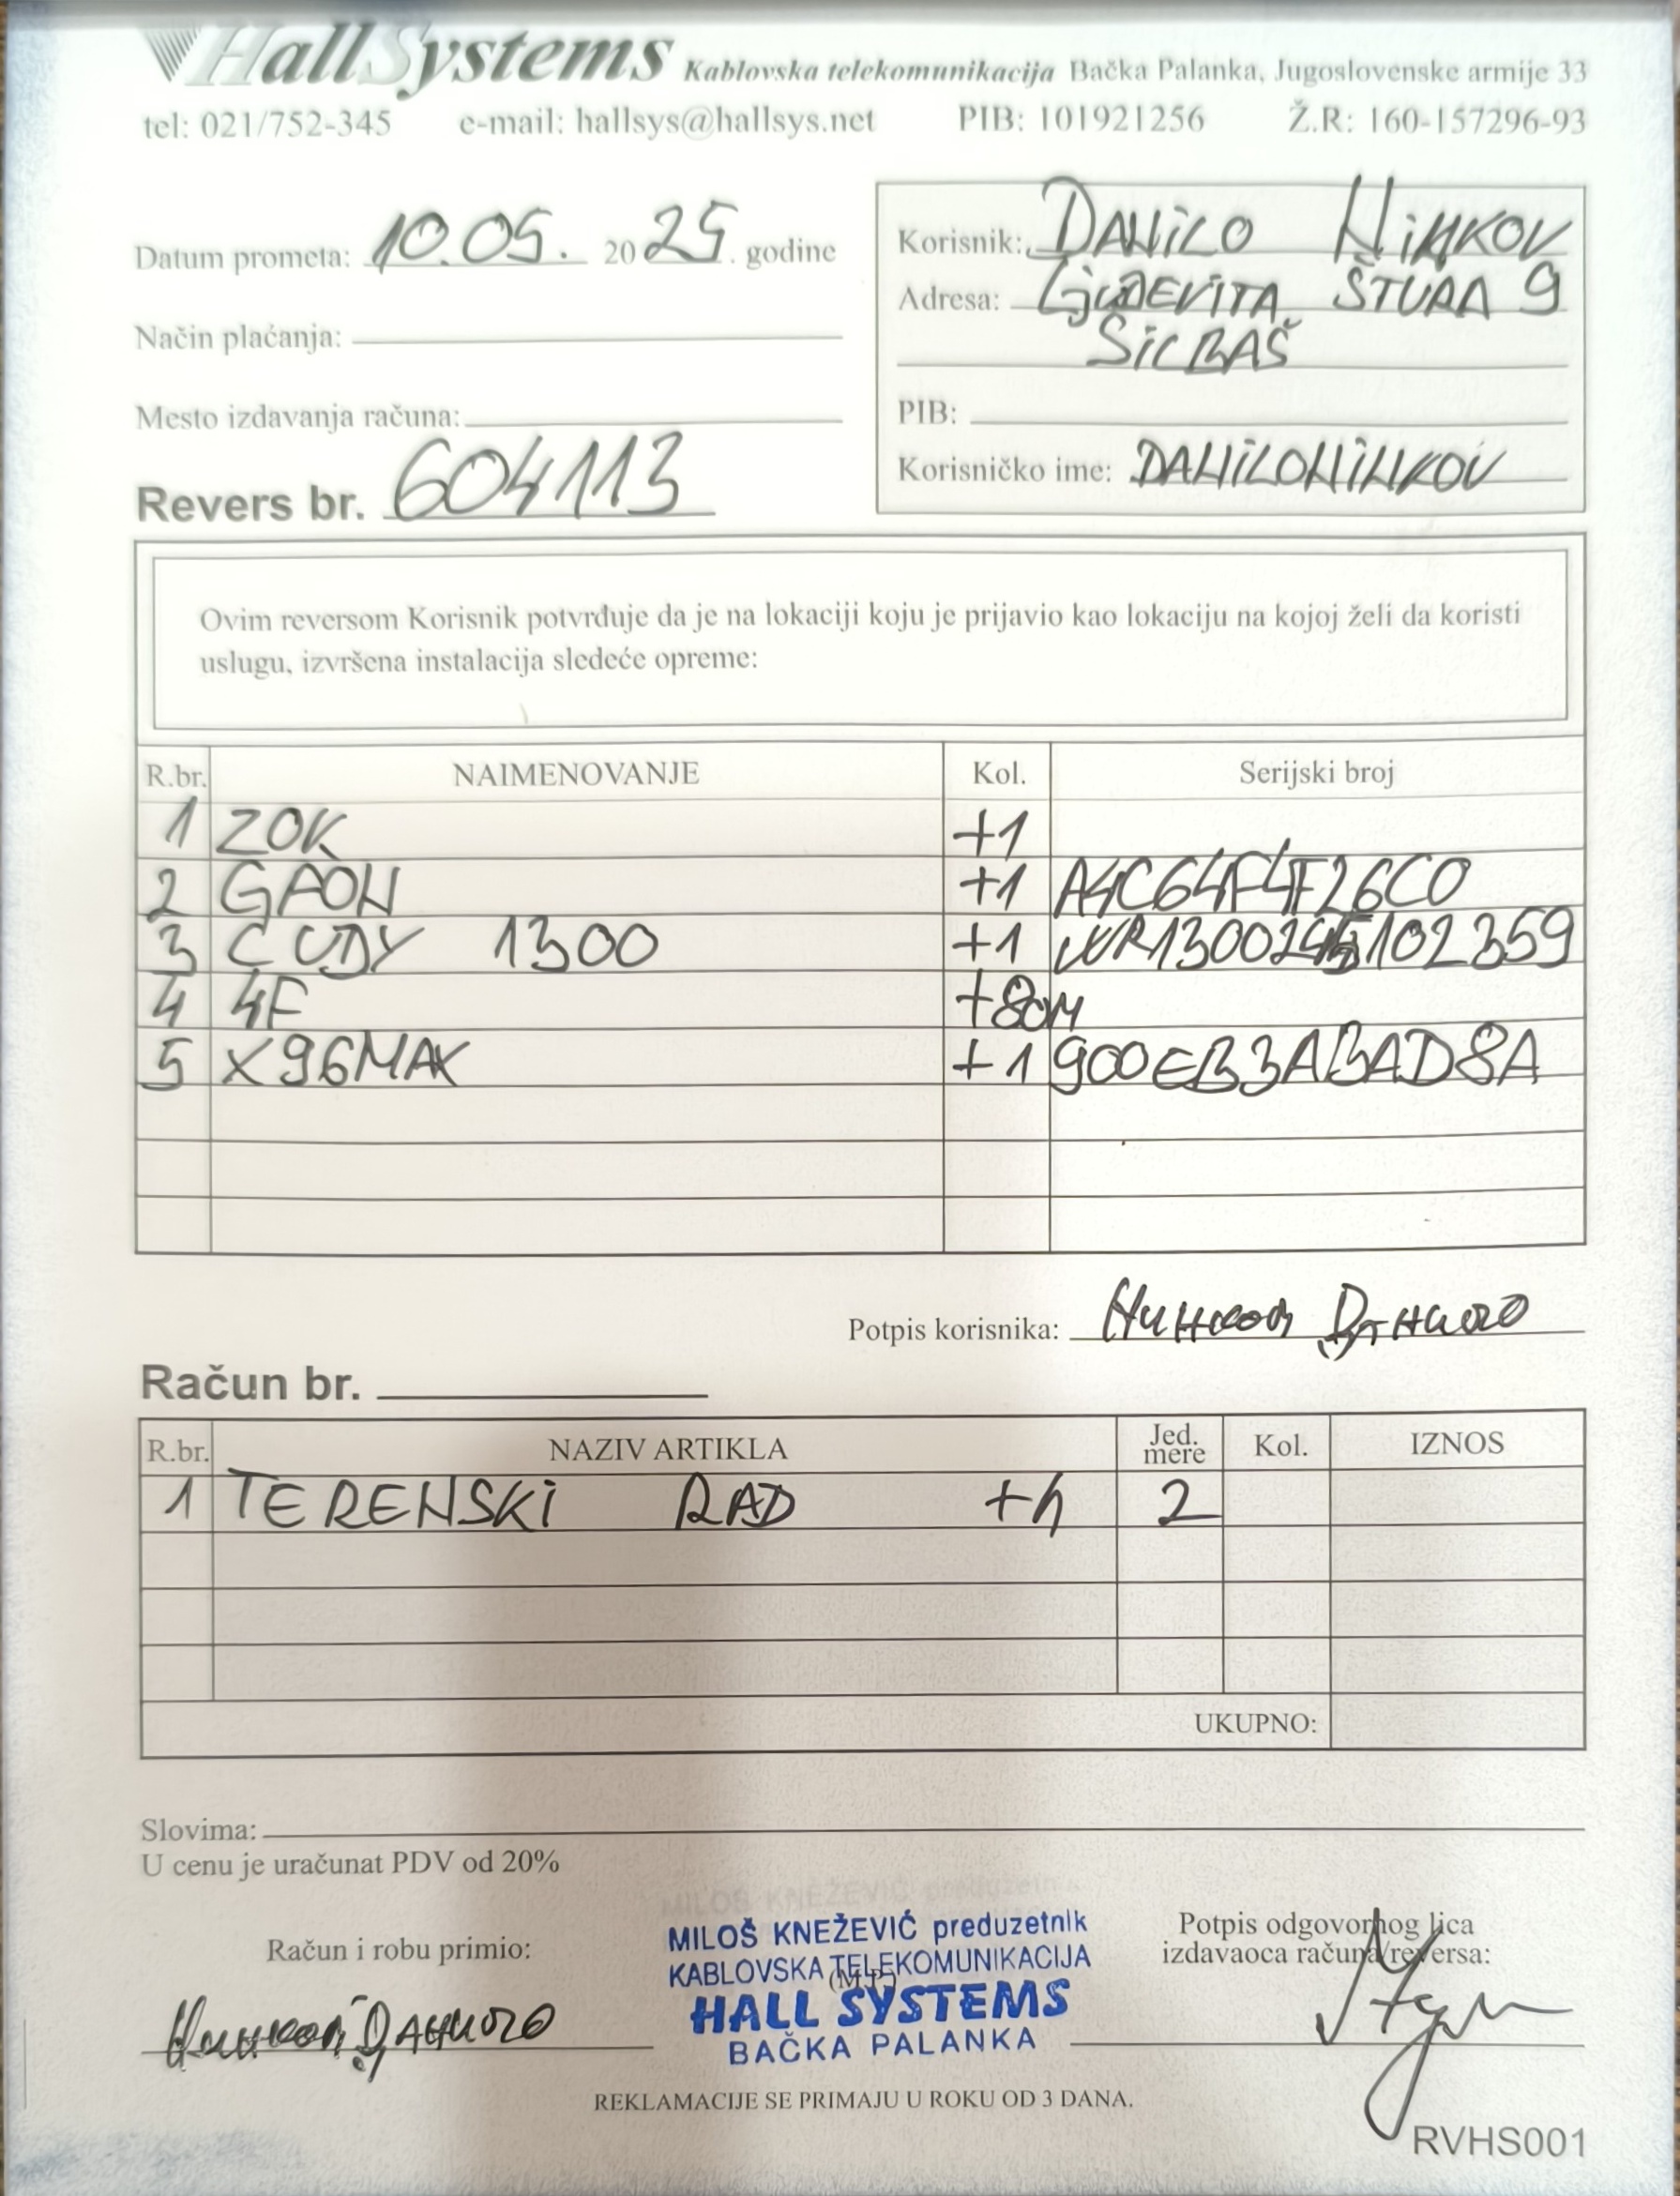 HallSystems Kablovska telekomunikacija Bačka Palanka, Jugoslovenske armije 33
tel: 021/752-345 e-mail: hallsys@hallsys.net PIB: 101921256 Ž.R: 160-157296-93
Datum prometa: 10.05. 2025. godine
Način plaćanja:
Mesto izdavanja računa:
Revers br. 604113
Korisnik: DANiLO NiNKOV
Adresa: LjUDEViTA ŠTURA 9
SiLBAŠ
PIB:
Korisničko ime: DANiLONiNKOV
Ovim reversom Korisnik potvrđuje da je na lokaciji koju je prijavio kao lokaciju na kojoj želi da koristi
uslugu, izvršena instalacija sledeće opreme:
R.br. NAIMENOVANJE Kol. Serijski broj
1 ZOK +1
2 GAON +1 A4C64F4F26C0
3 CUDY 1300 +1
4 4F +80M
5 X96MAX +1 900EB3ABAD8A
Potpis korisnika: Нинков Данило
Račun br.
R.br. NAZIV ARTIKLA Jed. mere Kol. IZNOS
1 TERENSKi RAD +h 2
UKUPNO:
Slovima:
U cenu je uračunat PDV od 20%
Račun i robu primio:
Нинков Данило
MILOŠ KNEŽEVIĆ preduzetnik
KABLOVSKA TELEKOMUNIKACIJA
(M.P.)
HALL SYSTEMS
BAČKA PALANKA
Potpis odgovornog lica
izdavaoca računa/reversa:
REKLAMACIJE SE PRIMAJU U ROKU OD 3 DANA.
RVHS001